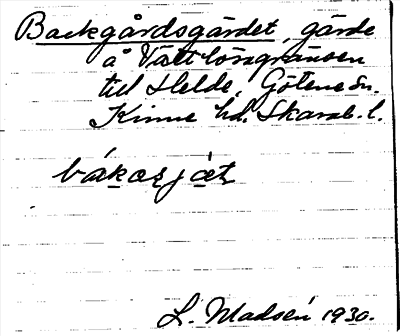 Backgårdsgärdet, gärde
å Vättlösagränsen
till Helde, Götene sn.
Kinne hd. Skarab. l.
bákasjæt
L. Madsén 1930.